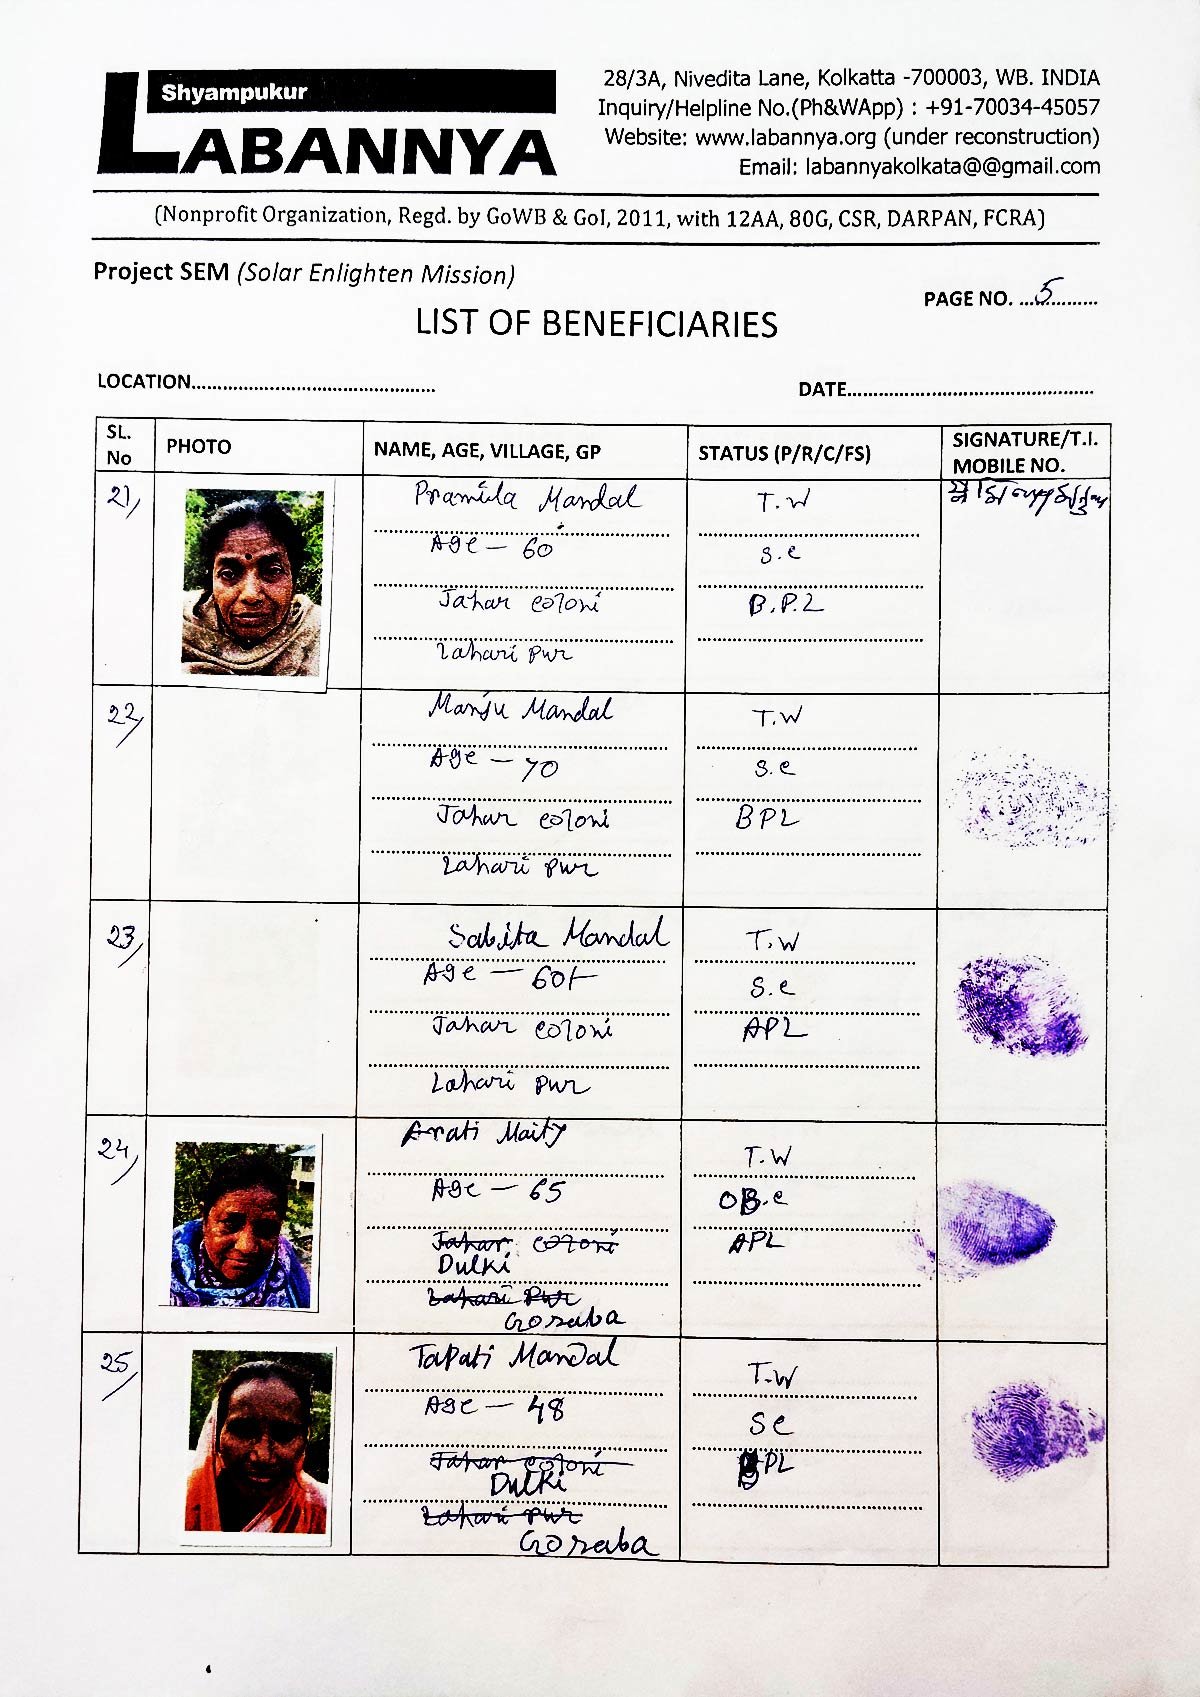 Shyampukur
LABANNYA
28/3A, Nivedita Lane, Kolkatta -700003, WB. INDIA
Inquiry/Helpline No.(Ph&WApp) : +91-70034-45057
Website: www.labannya.org (under reconstruction)
Email: labannyakolkata@@gmail.com
(Nonprofit Organization, Regd. by GoWB & GoI, 2011, with 12AA, 80G, CSR, DARPAN, FCRA)
Project SEM (Solar Enlighten Mission)
PAGE NO. ...5..........
LIST OF BENEFICIARIES
LOCATION...............................................
DATE................................................
SL. No PHOTO NAME, AGE, VILLAGE, GP STATUS (P/R/C/FS) SIGNATURE/T.I. MOBILE NO.
21, Pramila Mandal T.W
Age - 60 S.C
Jahar Coloni B.P.L
Lahari pur
22, Manju Mandal T.W
Age - 70 S.C
Jahar Coloni BPL
Lahari pur
23, Sabita Mandal T.W
Age - 60+ S.C
Jahar Coloni APL
Lahari pur
24, Arati Maity T.W
Age - 65 OB.C
Jahar Coloni APL
Dulki
Lahari Pur
Gosaba
25, Tapati Mandal T.W
Age - 48 SC
Jahar Coloni BPL
Dulki
Lahari pur
Gosaba